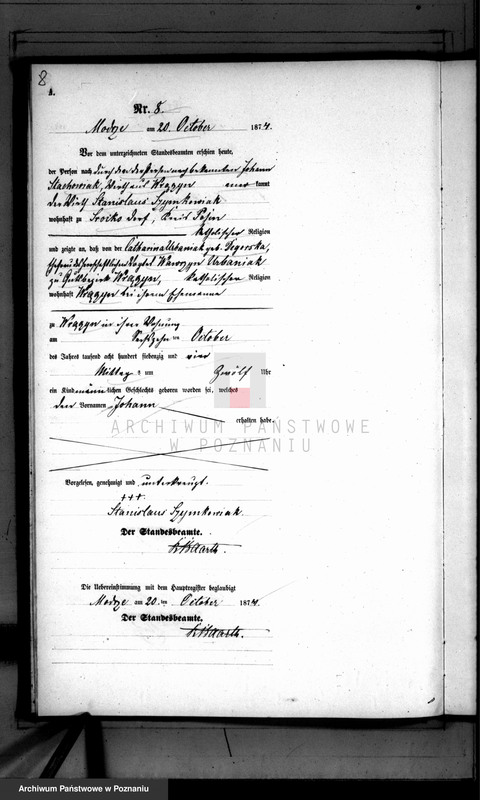 8
A.
Nr. 8.
Modze am 20. October 1874.
Vor dem unterzeichneten Standesbeamten erschien heute,
der Person nach durch den persönlich bekannten Johann
Stachowiak, Wirth aus Wrąszyn aner kannt
der Wirth Stanislaus Szymkowiak
wohnhaft zu Sroiko Dorf, Kreis Posen
katholischer Religion
und zeigte an, daß von der Catharina Urbaniak geb. Gegorska,
Vogtes Wawrzyn Urbaniak
zu Gutsbezirk katholischen Religion
wohnhaft bei ihrem Ehemanne
zu in ihrer Wohnung
am Sechszehnten October
des Jahres tausend acht hundert siebenzig und vier
Mittag s um Zwölf Uhr
ein Kind männlichen Geschlechts geboren worden sei, welches
den Vornamen Johann
erhalten habe.
ARCHIWUM PAŃSTWOWE
W POZNANIU
Vorgelesen, genehmigt und unterkreuzt.
+++.
Stanislaus Szymkowiak.
Der Standesbeamte.
Die Uebereinstimmung mit dem Hauptregister beglaubigt
Modze am 20. ten October 1874.
Der Standesbeamte.
Archiwum Państwowe w Poznaniu